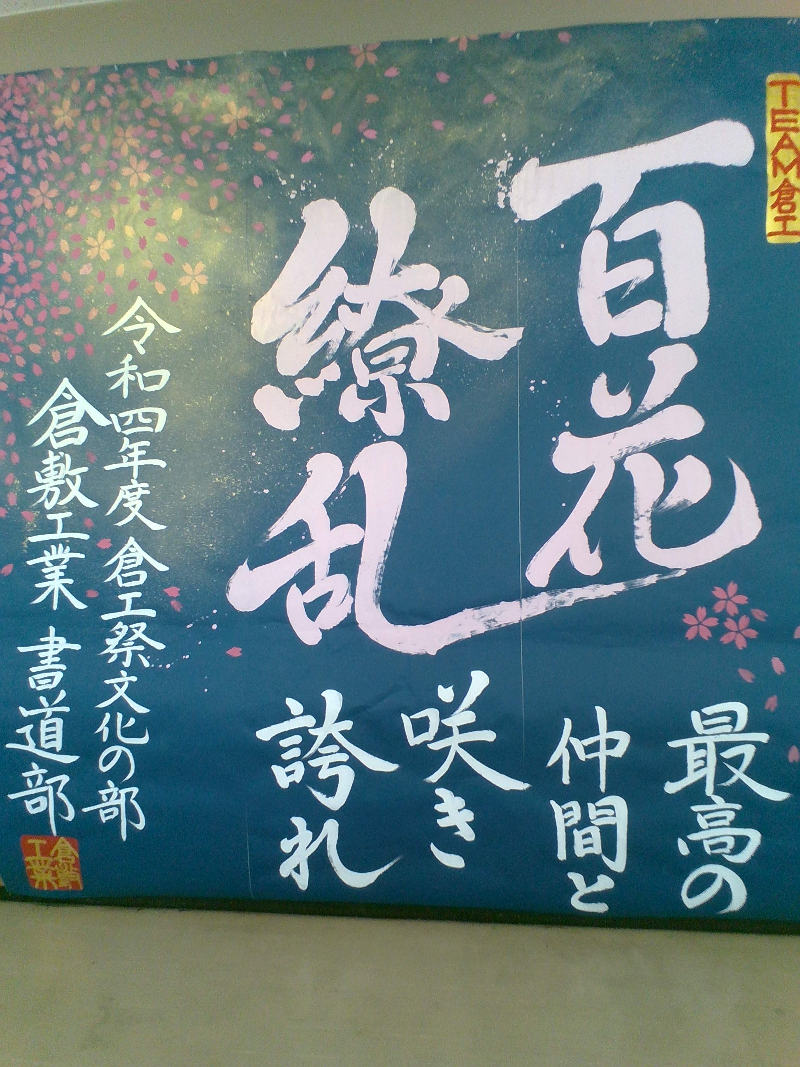 TEAM創工
百花
繚乱
最高の
仲間と
咲き
誇れ
令和四年度 倉工祭文化の部
倉敷工業 書道部
倉敷
工業